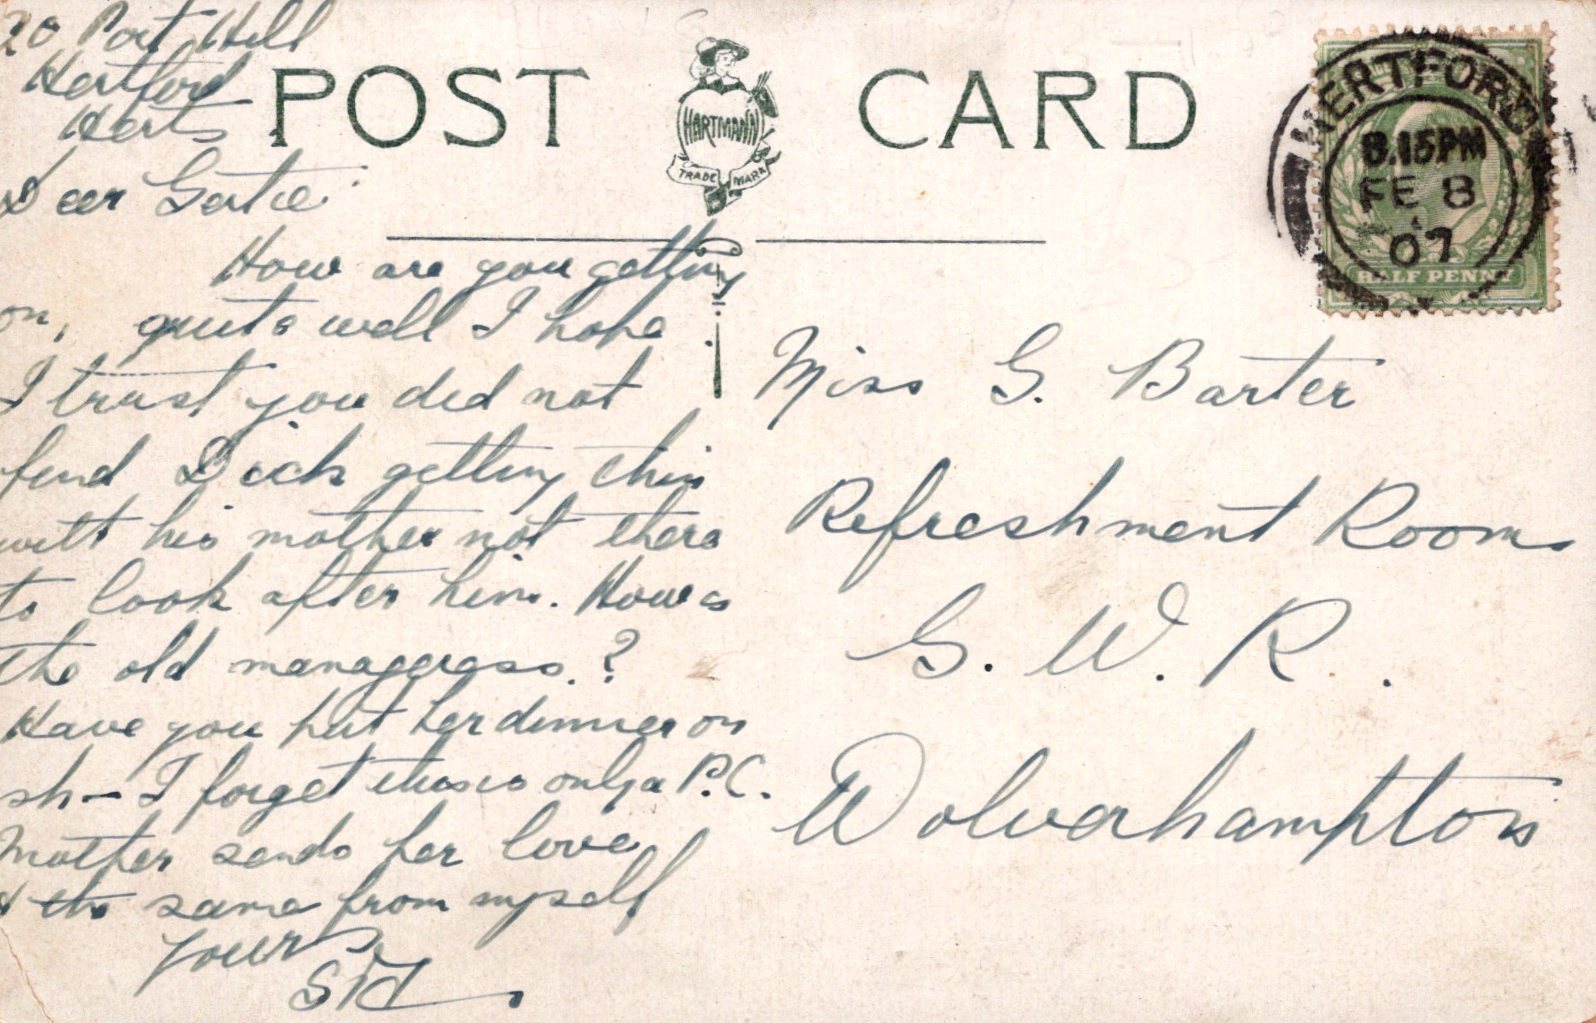 20 Port Hill
Hertford
Herts
POST CARD
HARTMANN
TRADE MARK
HERTFORD
8.15PM
FE 8
07
HALF PENNY
Dear Gertie
How are you getting
on, quite well I hope.
I trust you did not
find Dick getting thin
with his mother not there
to look after him. How is
the old manageress.?
Have you put her dinner on
sh— I forget this is only a P.C.
Mother sends her love
& the same from myself
Yours
Sid
Miss G. Barter
Refreshment Rooms
G. W. R.
Wolverhampton